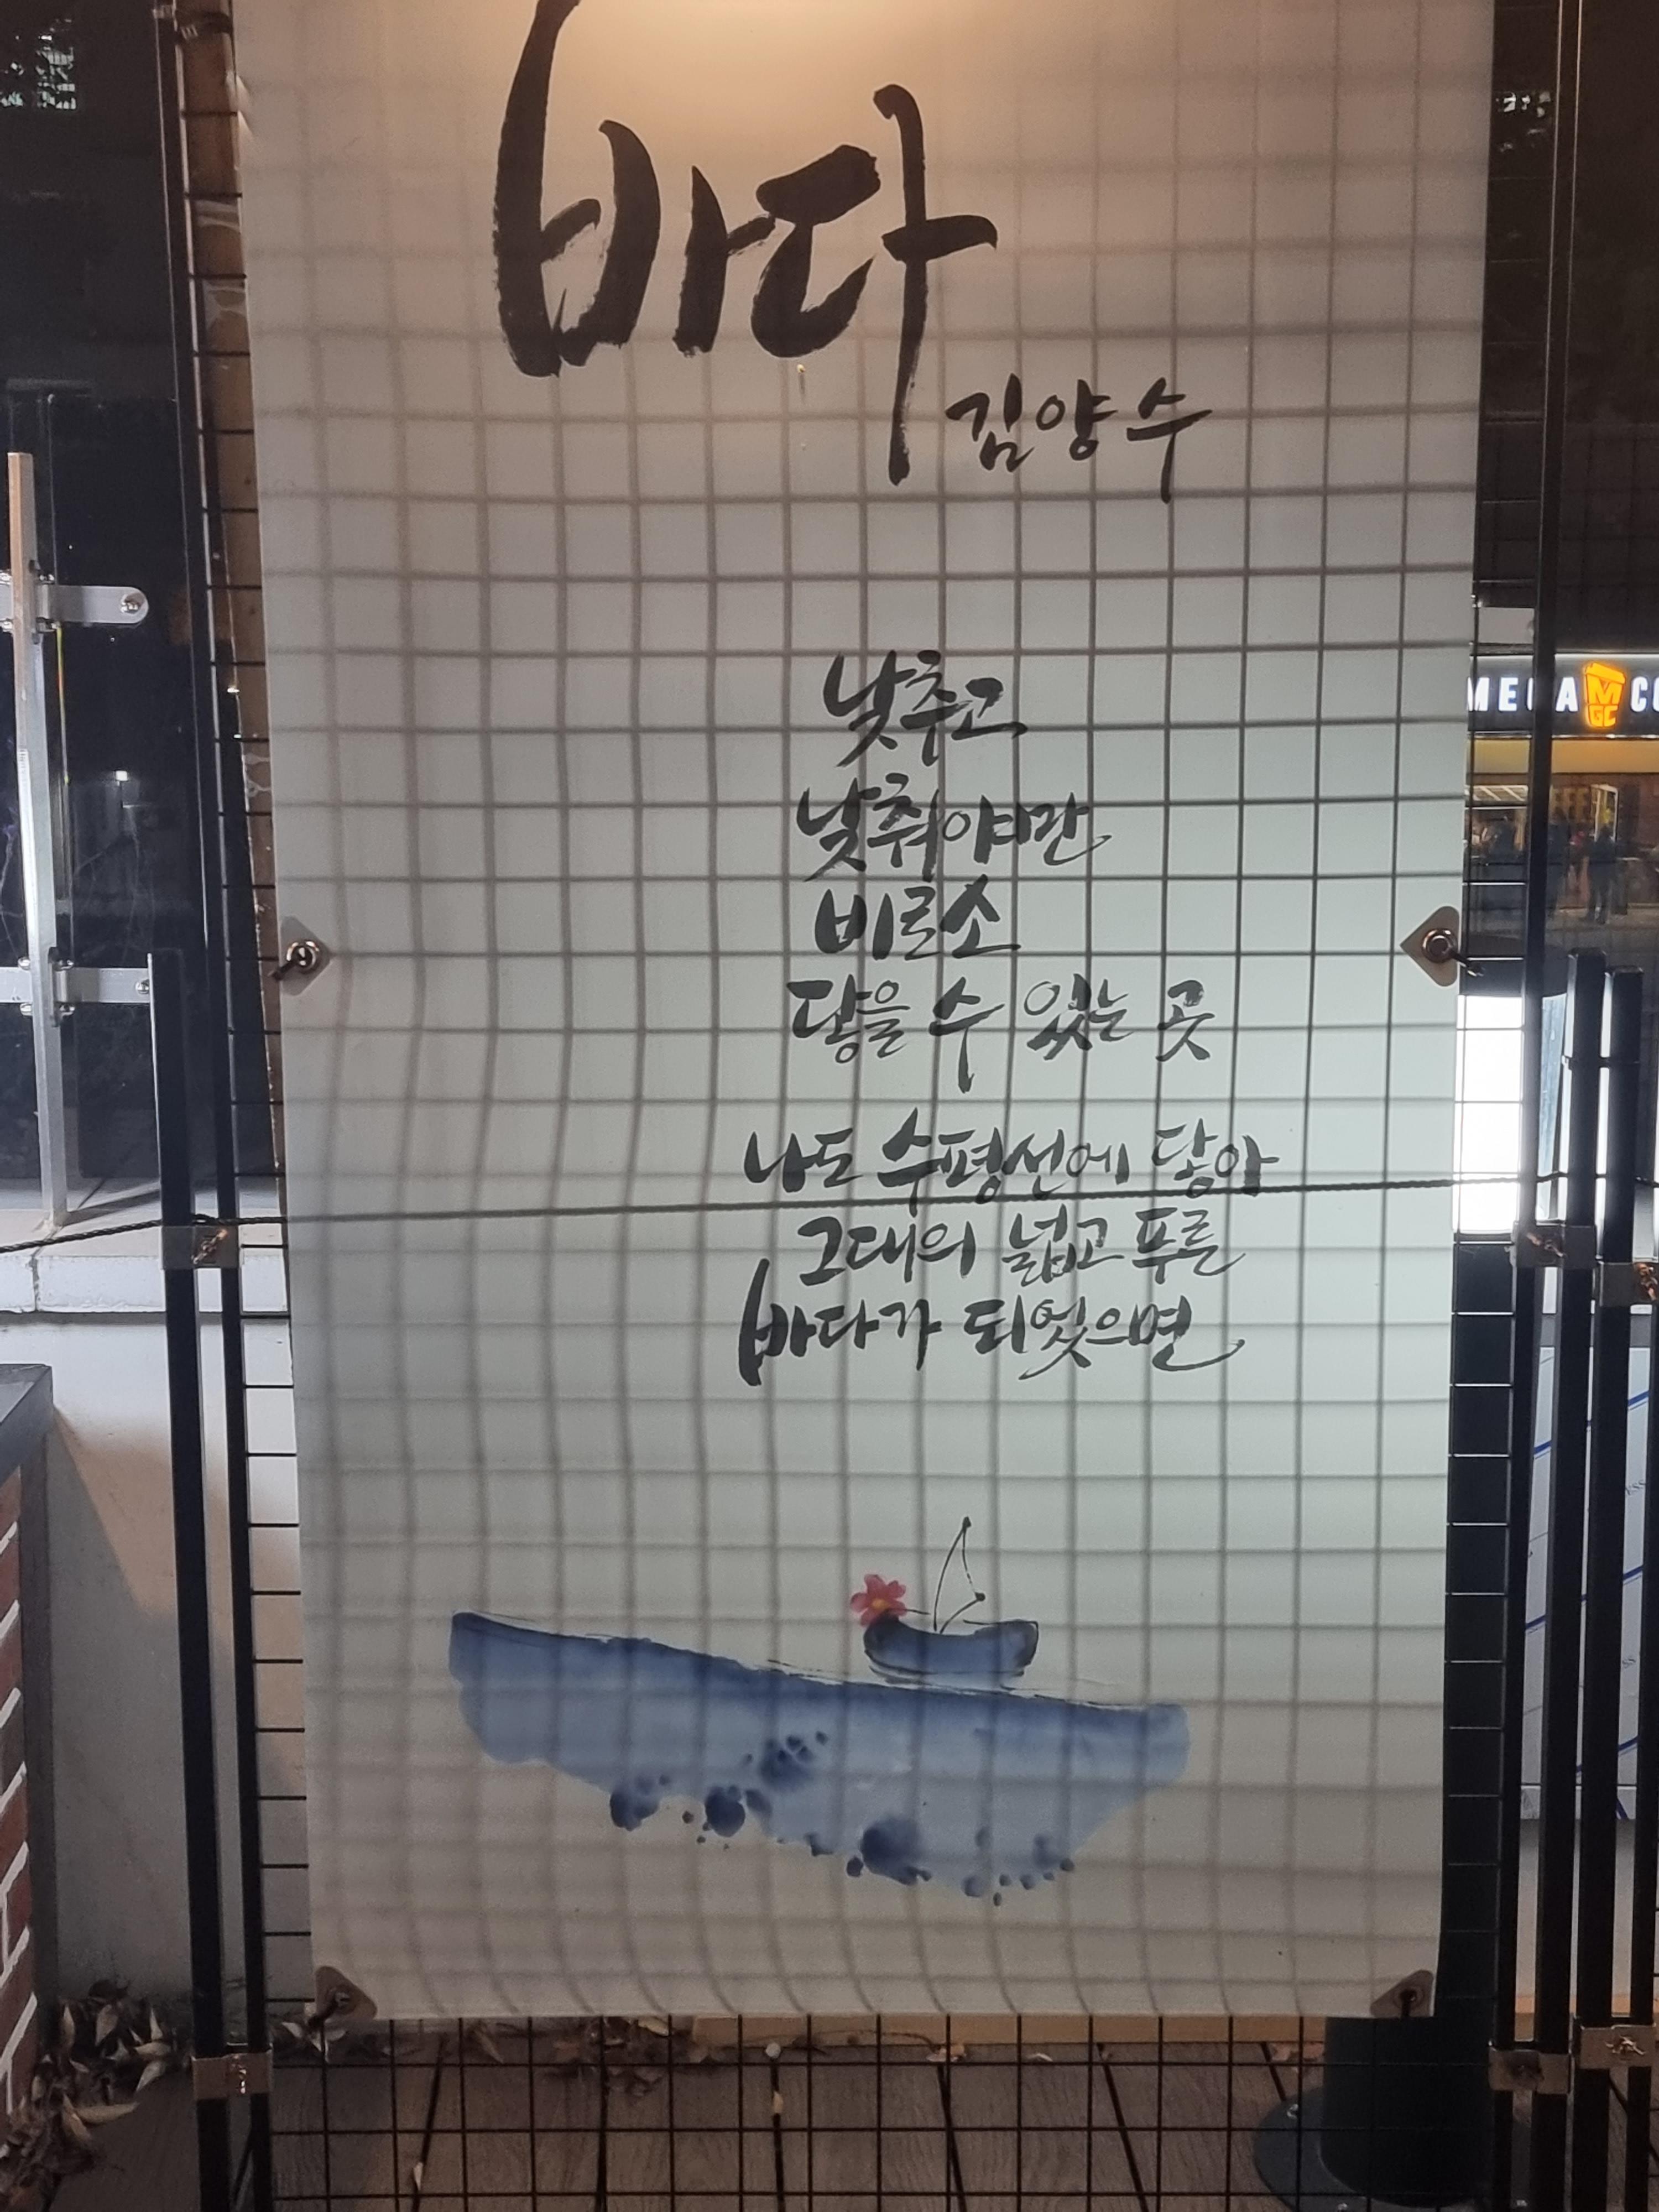 바다
김양수
낮추고
낮춰야만
비로소
닿을 수 있는 곳
나도 수평선에 닿아
그대의 넓고 푸른
바다가 되었으면
MEGA MGC CO